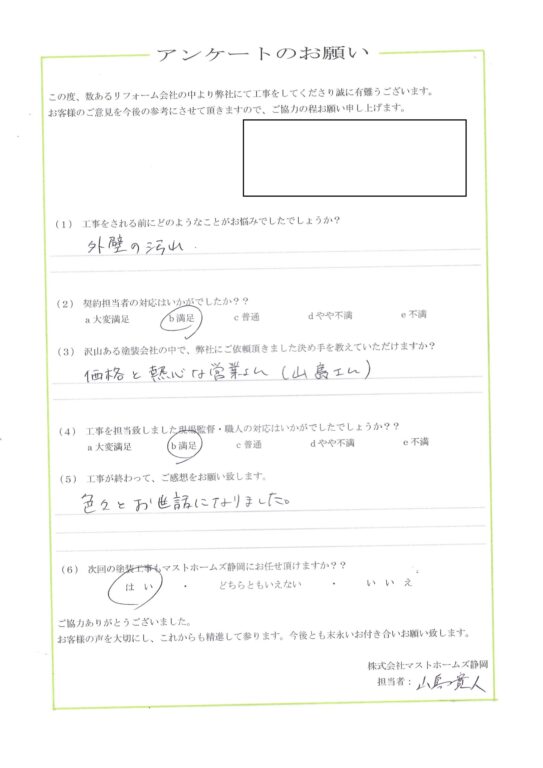 アンケートのお願い
この度、数あるリフォーム会社の中より弊社にて工事をしてくださり誠に有難うございます。
お客様のご意見を今後の参考にさせて頂きますので、ご協力の程お願い申し上げます。
(1) 工事をされる前にどのようなことがお悩みでしたでしょうか?
外壁の汚れ
(2) 契約担当者の対応はいかがでしたか??
a 大変満足 b 満足 c 普通 d やや不満 e 不満
(3) 沢山ある塗装会社の中で、弊社にご依頼頂きました決め手を教えていただけますか?
価格と熱心な営業さん(山島さん)
(4) 工事を担当致しました現場監督・職人の対応はいかがでしたでしょうか??
a 大変満足 b 満足 c 普通 d やや不満 e 不満
(5) 工事が終わって、ご感想をお願い致します。
色々とお世話になりました。
(6) 次回の塗装工事もマストホームズ静岡にお任せ頂けますか??
はい ・ どちらともいえない ・ いいえ
ご協力ありがとうございました。
お客様の声を大切にし、これからも精進して参ります。今後とも末永いお付き合いお願い致します。
株式会社マストホームズ静岡
担当者:山島貴人